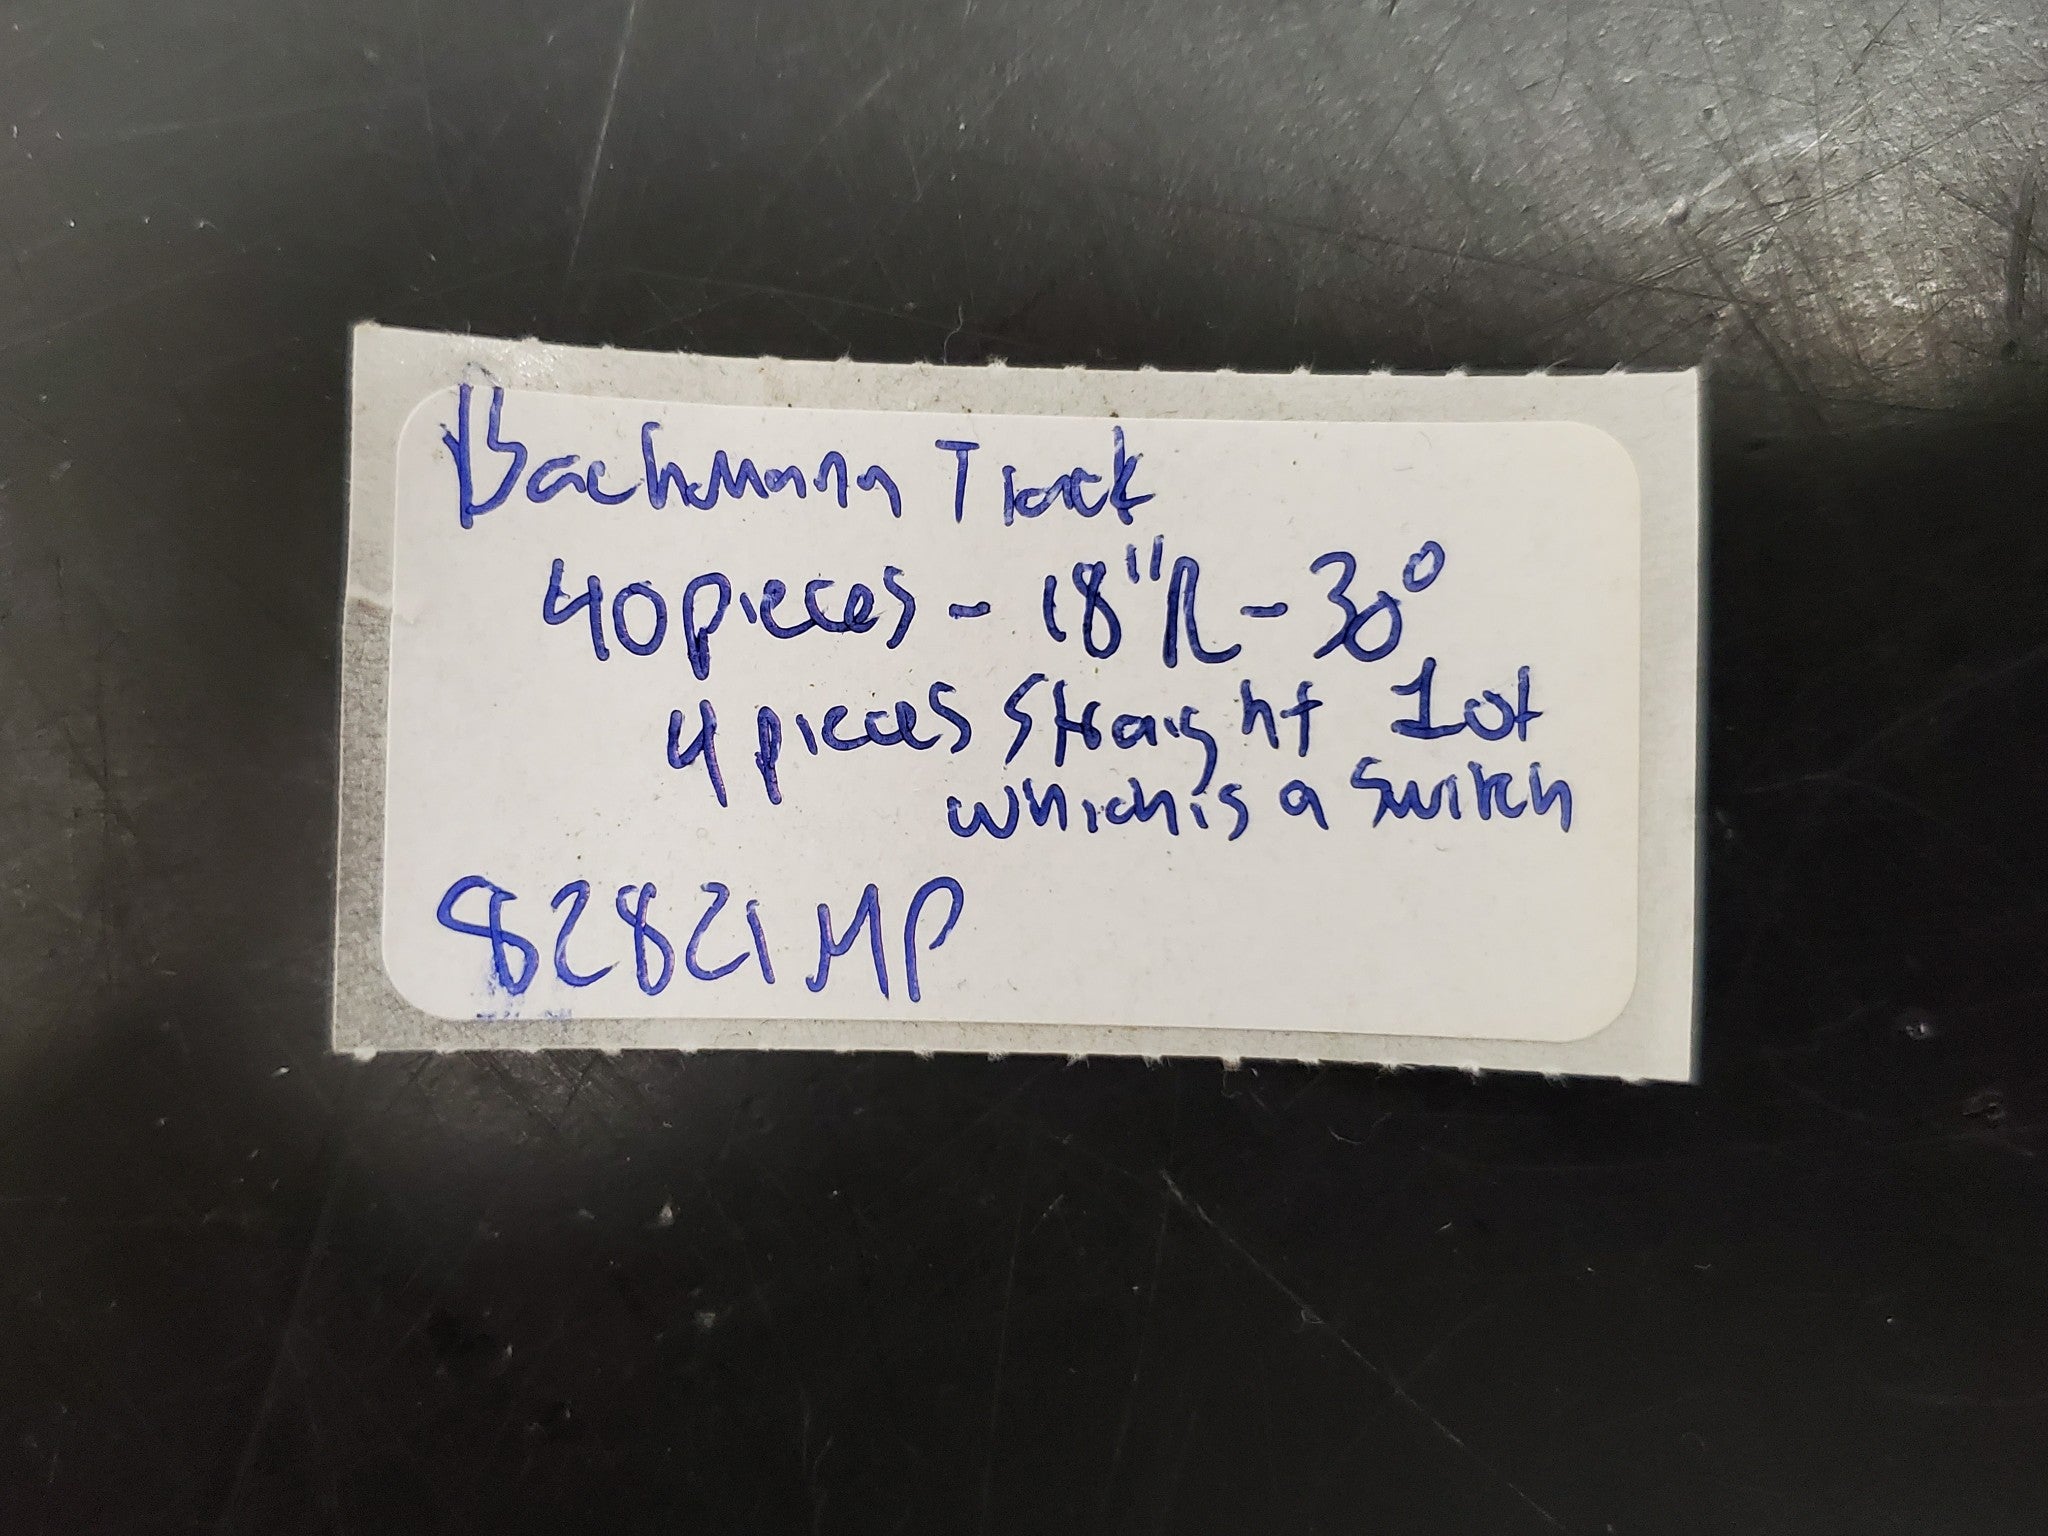 Bachmann Track
40 pieces - 18"R - 30°
4 pieces straight 1 of
which is a switch
82821 MP